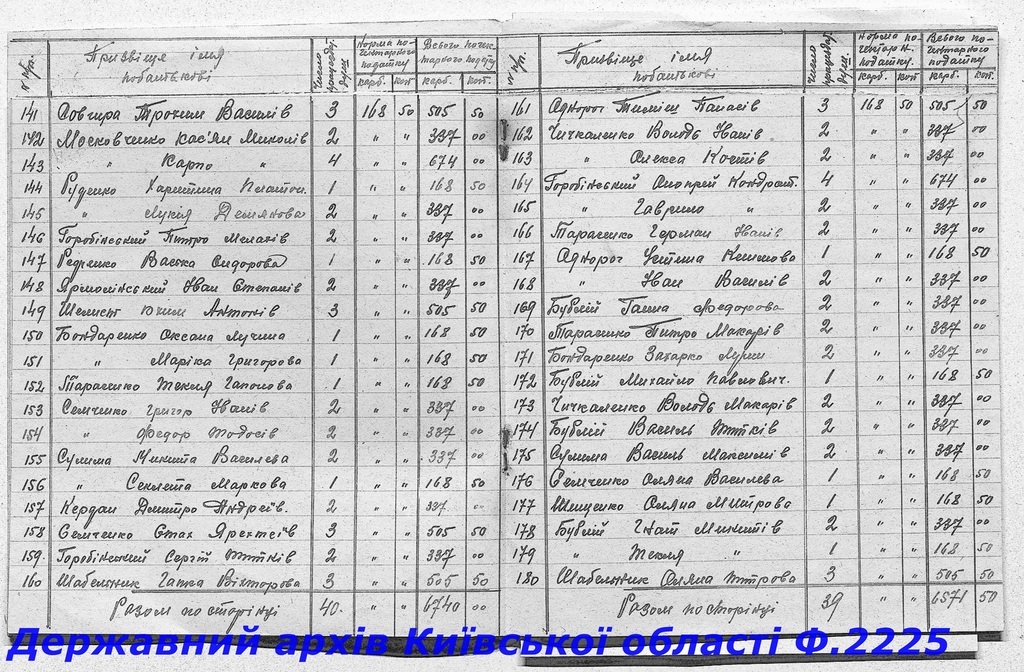 № п/п. Призвіще ім'я побатькові Число працездат. душ. Норма по-гектарного податку карб. коп Всього погек-тарного податку карб. коп.
141 Довгира Трохим Василів 3 168 50 505 50
142 Московченко Касьян Миколів 2 " " 337 00
143 " Карпо " 4 " " 674 00
144 Руденко Харитина Платон. 1 " " 168 50
145 " Лукія Демянова 2 " " 337 00
146 Горобінський Питро Мелахів 2 " " 337 00
147 Редченко Васька Сидорова 1 " " 168 50
148 Ярмолінський Іван Степанів 2 " " 337 00
149 Шелист Юхим Антонів 3 " " 505 50
150 Бондаренко Оксана Лучина 1 " " 168 50
151 " Маріка Григорова 1 " " 168 50
152 Тарасенко Текля Гапонова 1 " " 168 50
153 Семченко Григор Іванів 2 " " 337 00
154 " Федор Тодосів 2 " " 337 00
155 Сулима Микита Василева 2 " " 337 00
156 " Секлета Маркова 1 " " 168 50
157 Кердан Дмитро Андреїв. 2 " " 337 00
158 Семченко Стах 3 " " 505 50
159. Горобінський Сергій Титків 2 " " 337 00
160 Шабельник Гапка Вікторова 3 " " 505 50
Разом по сторінці 40. " " 6740 00
№ Призвіще ім'я побатькові Число працездат. душ. Норма по-гектарн. податку. карб. коп Всього по-гектарного податку карб. коп.
161 Однорог Тиміш Панасів 3 168 50 505 50
162 Чичкаленко Володь Іванів 2 " " 337 00
163 " Олекса Костів 2 " " 337 00
164 Горобінський Онопрей Кондрат. 4 " " 674 00
165 " Гаврило " 2 " " 337 00
166 Тарасенко Герман Іванів 2 " " 337 00
167 Однорог Устина Климова 1 " " 168 50
168 " Іван Василів 2 " " 337 00
169 Бублій Ганна Федорова 2 " " 337 00
170 Тарасенко Питро Макарів 2 " " 337 00
171 Бондаренко Захарко Луки 2 " " 337 00
172 Бублій Михайло Павлович. 1 " " 168 50
173 Чичкаленко Володь Макарів 2 " " 337 00
174 Бублій Василь Титків 2 " " 337 00
175 Сулима Василь Максимів 2 " " 337 00
176 Семченко Оляна Василева 1 " " 168 50
177 Оляна Митрова 1 " " 168 50
178 Бублій Гнат Микитів 2 " " 337 00
179 " Текля " 1 " " 168 50
180 Шабельник Оляна Питрова 3 " " 505 50
Разом по сторінці 39 " " 6571 50
Державний архів Київської області Ф.2225